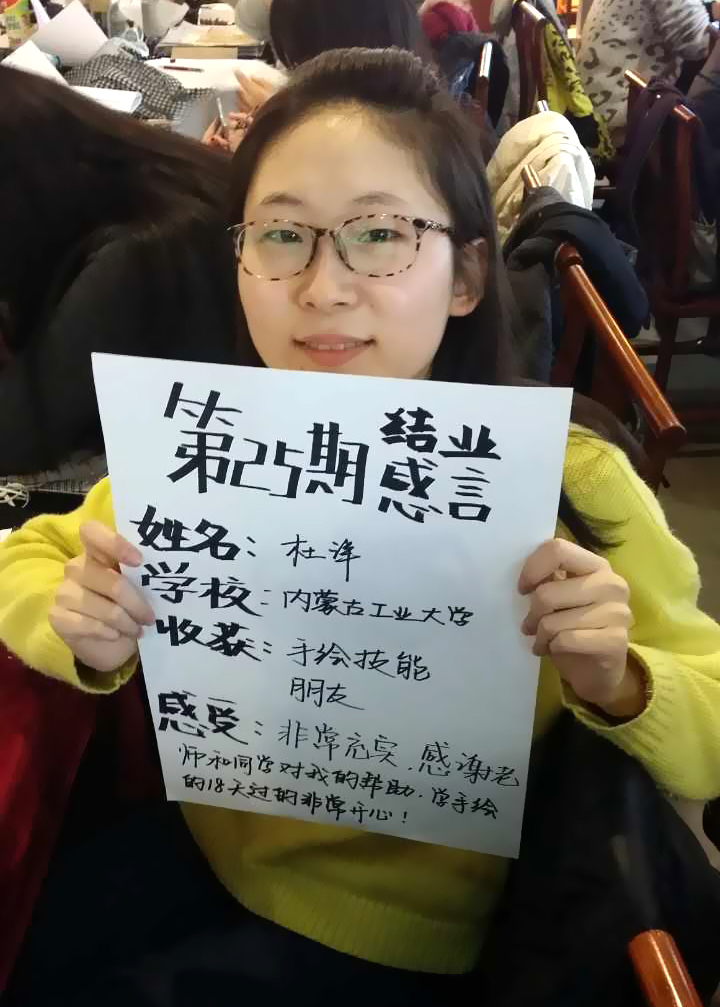 第25期结业感言
姓名：杜泽
学校：内蒙古工业大学
收获：手绘技能
朋友
感受：非常充实.感谢老
师和同学对我的帮助.学手绘
的18天过的非常开心！